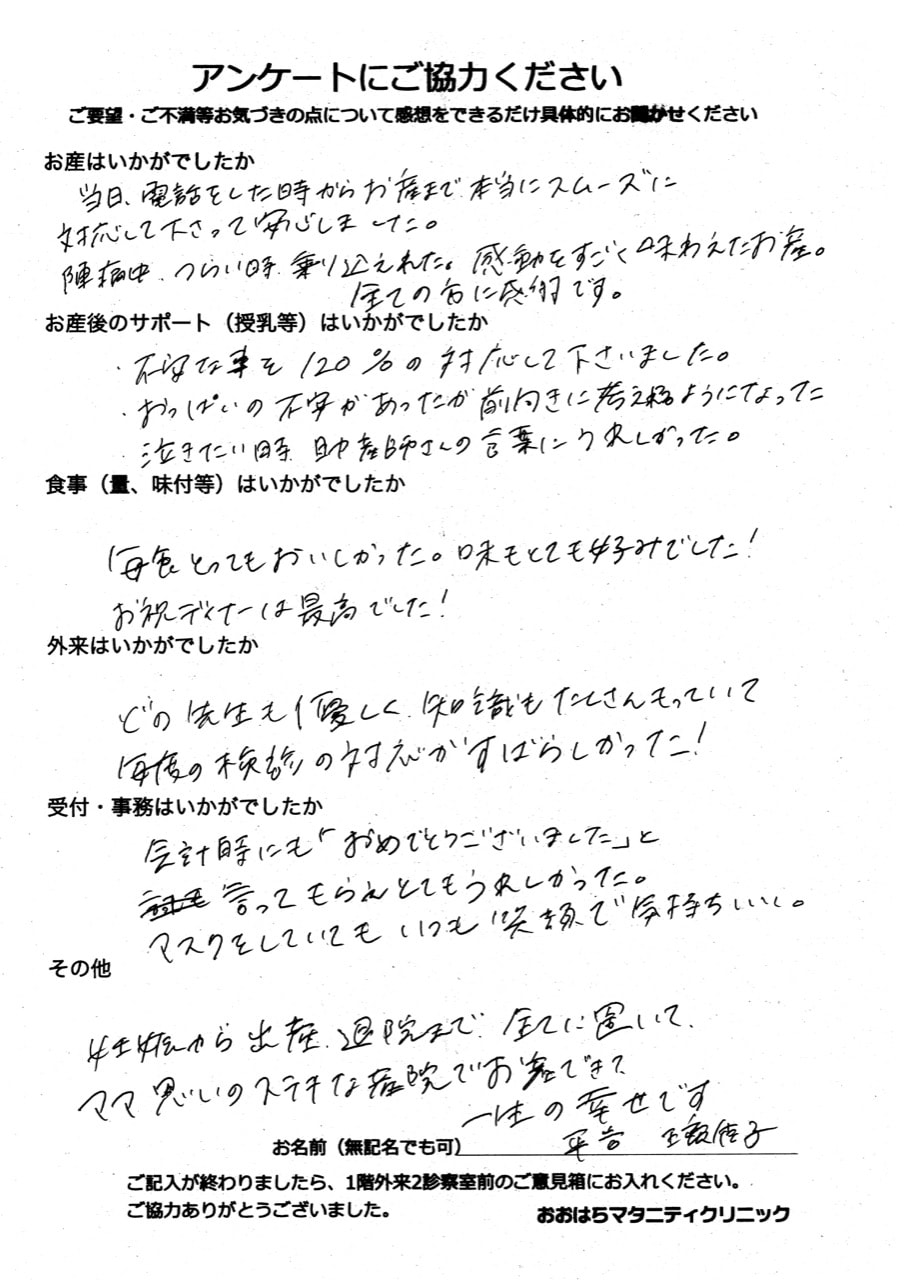 アンケートにご協力ください
ご要望・ご不満等お気づきの点について感想をできるだけ具体的にお聞かせください
お産はいかがでしたか
当日、電話をした時からお産まで本当にスムーズに
対応して下さって安心しました。
陣痛中、つらい時、乗り込えれた。感動をすごく味わえたお産。
全ての方に感謝です。
お産後のサポート（授乳等）はいかがでしたか
・不安な事を120%の対応して下さいました。
・おっぱいの不安があったが前向きに考え始るようになった
・泣きたい時、助産師さんの言葉にうれしかった。
食事（量、味付等）はいかがでしたか
毎食とってもおいしかった。味もとても好みでした！
お祝ディナーは最高でした！
外来はいかがでしたか
どの先生も優しく、知識もたくさんもっていて
毎度の検診の対応がすばらしかった！
受付・事務はいかがでしたか
会計時にも「おめでとうございました」と
言ってもらえとてもうれしかった。
マスクをしていてもいつも笑顔で気持ちいい。
その他
妊娠から出産、退院まで、全てに置いて、
ママ思いのステキな産院でお産できて
一生の幸せです
お名前（無記名でも可）
ご記入が終わりましたら、1階外来2診察室前のご意見箱にお入れください。
ご協力ありがとうございました。
おおはらマタニティクリニック